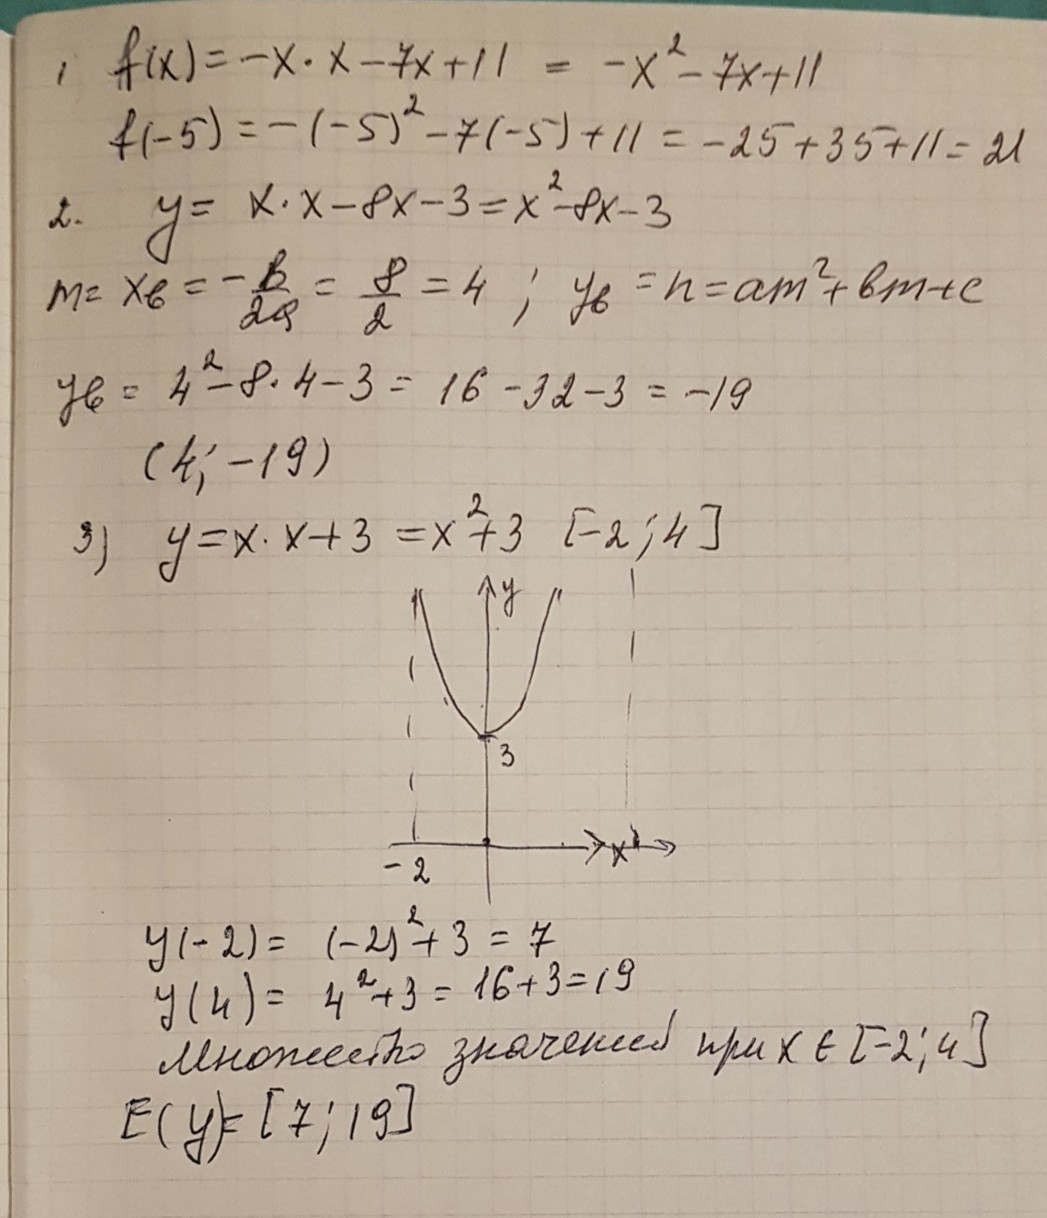 1 f(x) = -x · x - 7x + 11 = -x² - 7x + 11
f(-5) = -(-5)² - 7(-5) + 11 = -25 + 35 + 11 = 21
2. y = x · x - 8x - 3 = x² - 8x - 3
m = xв = -в/2a = 8/2 = 4 ; yв = n = am² + вm + c
yв = 4² - 8 · 4 - 3 = 16 - 32 - 3 = -19
(4; -19)
3) y = x · x + 3 = x² + 3 [-2; 4]
y
3
x
-2
y(-2) = (-2)² + 3 = 7
y(4) = 4² + 3 = 16 + 3 = 19
Множество значений при x ∈ [-2; 4]
E(y) = [7; 19]